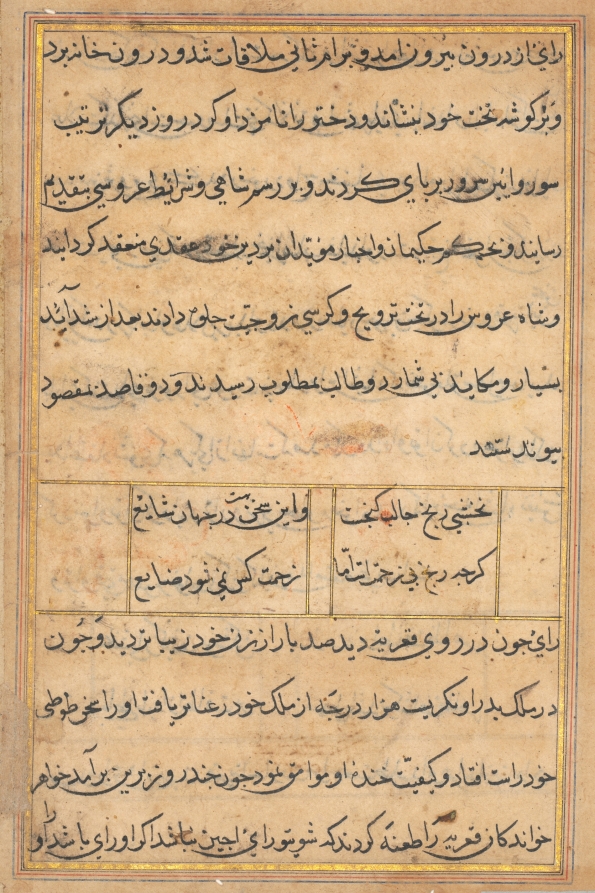 رای از درون بیرون امد و برام ثانی ملاقات شد و درون خانه برد
و بر کوشه تخت خود بنشاند و دختر را نامزد او کرد روز دیگر ترتیب
سور و سرور بر پای کردند و بر رسم شاهی و شرائط عروسی بتقدیم
رسایند و بحکم حکیمان و اخبار موبدان بر دین خود عقدی منعقد کردایند
و شاه عروس را در تخت ترویج و کرسی زوجیت جلوه دادند بعد از شدآئد
بسیار و مکاید بی شمار دو طالب بمطلوب رسیدند و دو قاصد بمقصود
پیوندستند
نخشبی رنج جالب کنجست
واین سخن هست در جهان شایع
کرچه رنج بی زحمتست اما
زحمت کس نمی شود ضایع
رای جون در روی قمریه دید صد بار از زن خود زیباتر دید و جون
در ملک پدر او نکریست هزار درجه از ملک خود رعناتر یافت او را سخن طوطی
خود راست افتاد و کیفیت خنده او موافق نمود جون چند روز برین برآمد خواهر
خواندکان قمریه را طعنه کردند که شوی تو رای اجین نباشد اکر او رای باشد او را